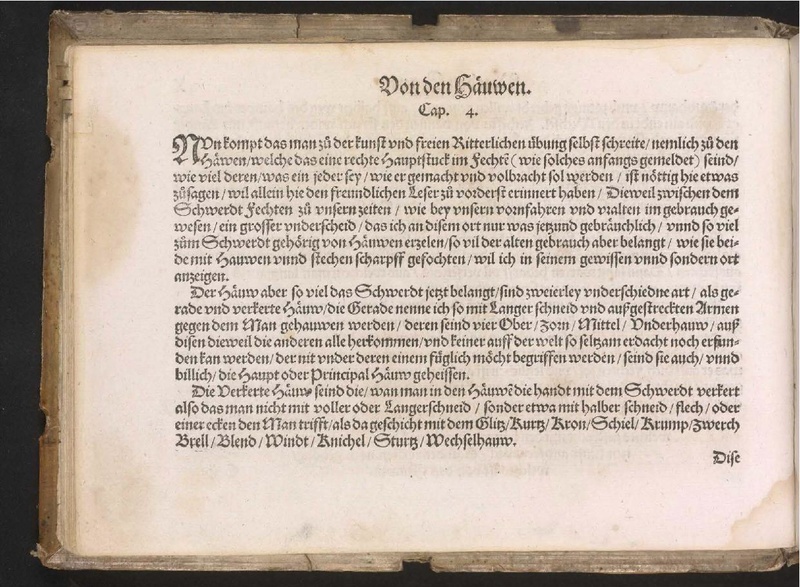 Von den Häuwen.
Cap. 4.
NUn kompt das man zů der kunst vnd freien Ritterlichen übung selbst schreite / nemlich zů den
Häwen / welche das eine rechte Hauptstuck im Fechtē ( wie solches anfangs gemeldet ) seind /
wie viel deren / was ein jeder sey / wie er gemacht vnd volbracht sol werden / ist nöttig hie etwas
zůsagen / wil allein hie den freundlichen Leser zů vorderst erinnert haben / Dieweil zwischen dem
Schwerdt Fechten zů vnsern zeiten / wie bey vnsern vornfahren vnd vralten im gebrauch ge-
wesen / ein grosser vnderscheid / das ich an disem ort nur was jetzund gebräuchlich / vnnd so viel
zům Schwerdt gehörig von Häuwen erzelen / so vil der alten gebrauch aber belangt / wie sie bei-
de mit Hauwen vnnd stechen scharpff gefochten / wil ich in seinem gewissen vnnd sondern ort
anzeigen.
Der Häuw aber so viel das Schwerdt jetzt belangt / sind zweierley vnderschiedne art / als ge-
rade vnd verkerte Häuw / die Gerade nenne ich so mit Langer schneid vnd außgestreckten Armen
gegen dem Man gehauwen werden / deren seind vier Ober / Zorn / Mittel / Vnderhauw / auß
disen dieweil die anderen alle herkommen / vnd keiner auff der welt so seltzam erdacht noch erfun-
den kan werden / der nit vnder deren einem füglich möcht begriffen werden / seind sie auch / vnnd
billich / die Haupt oder Principal Häuw geheissen.
Die Verkerte Häuw seind die / wan man in den Häuwē die handt mit dem Schwerdt verkert
also das man nicht mit voller oder Langerschneid / sonder etwa mit halber schneid / flech / oder
einer ecken den Man trifft / als da geschicht mit dem Glitz / Kurtz / Kron / Schiel / Krump / Zwerch
Brell / Blend / Windt / Knichel / Sturtz / Wechselhauw.
Dise